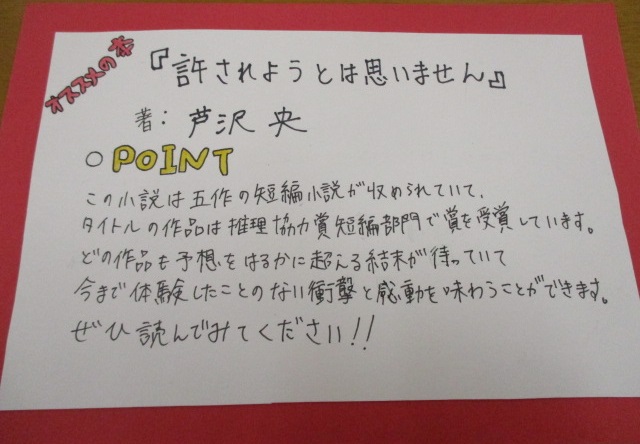 オススメの本
『許されようとは思いません』
著：芦沢 央
○ POINT
この小説は五作の短編小説が収められていて、
タイトルの作品は推理協力賞短編部門で賞を受賞しています。
どの作品も予想をはるかに超える結末が待っていて
今まで体験したことのない衝撃と感動を味わうことができます。
ぜひ読んでみてください!!